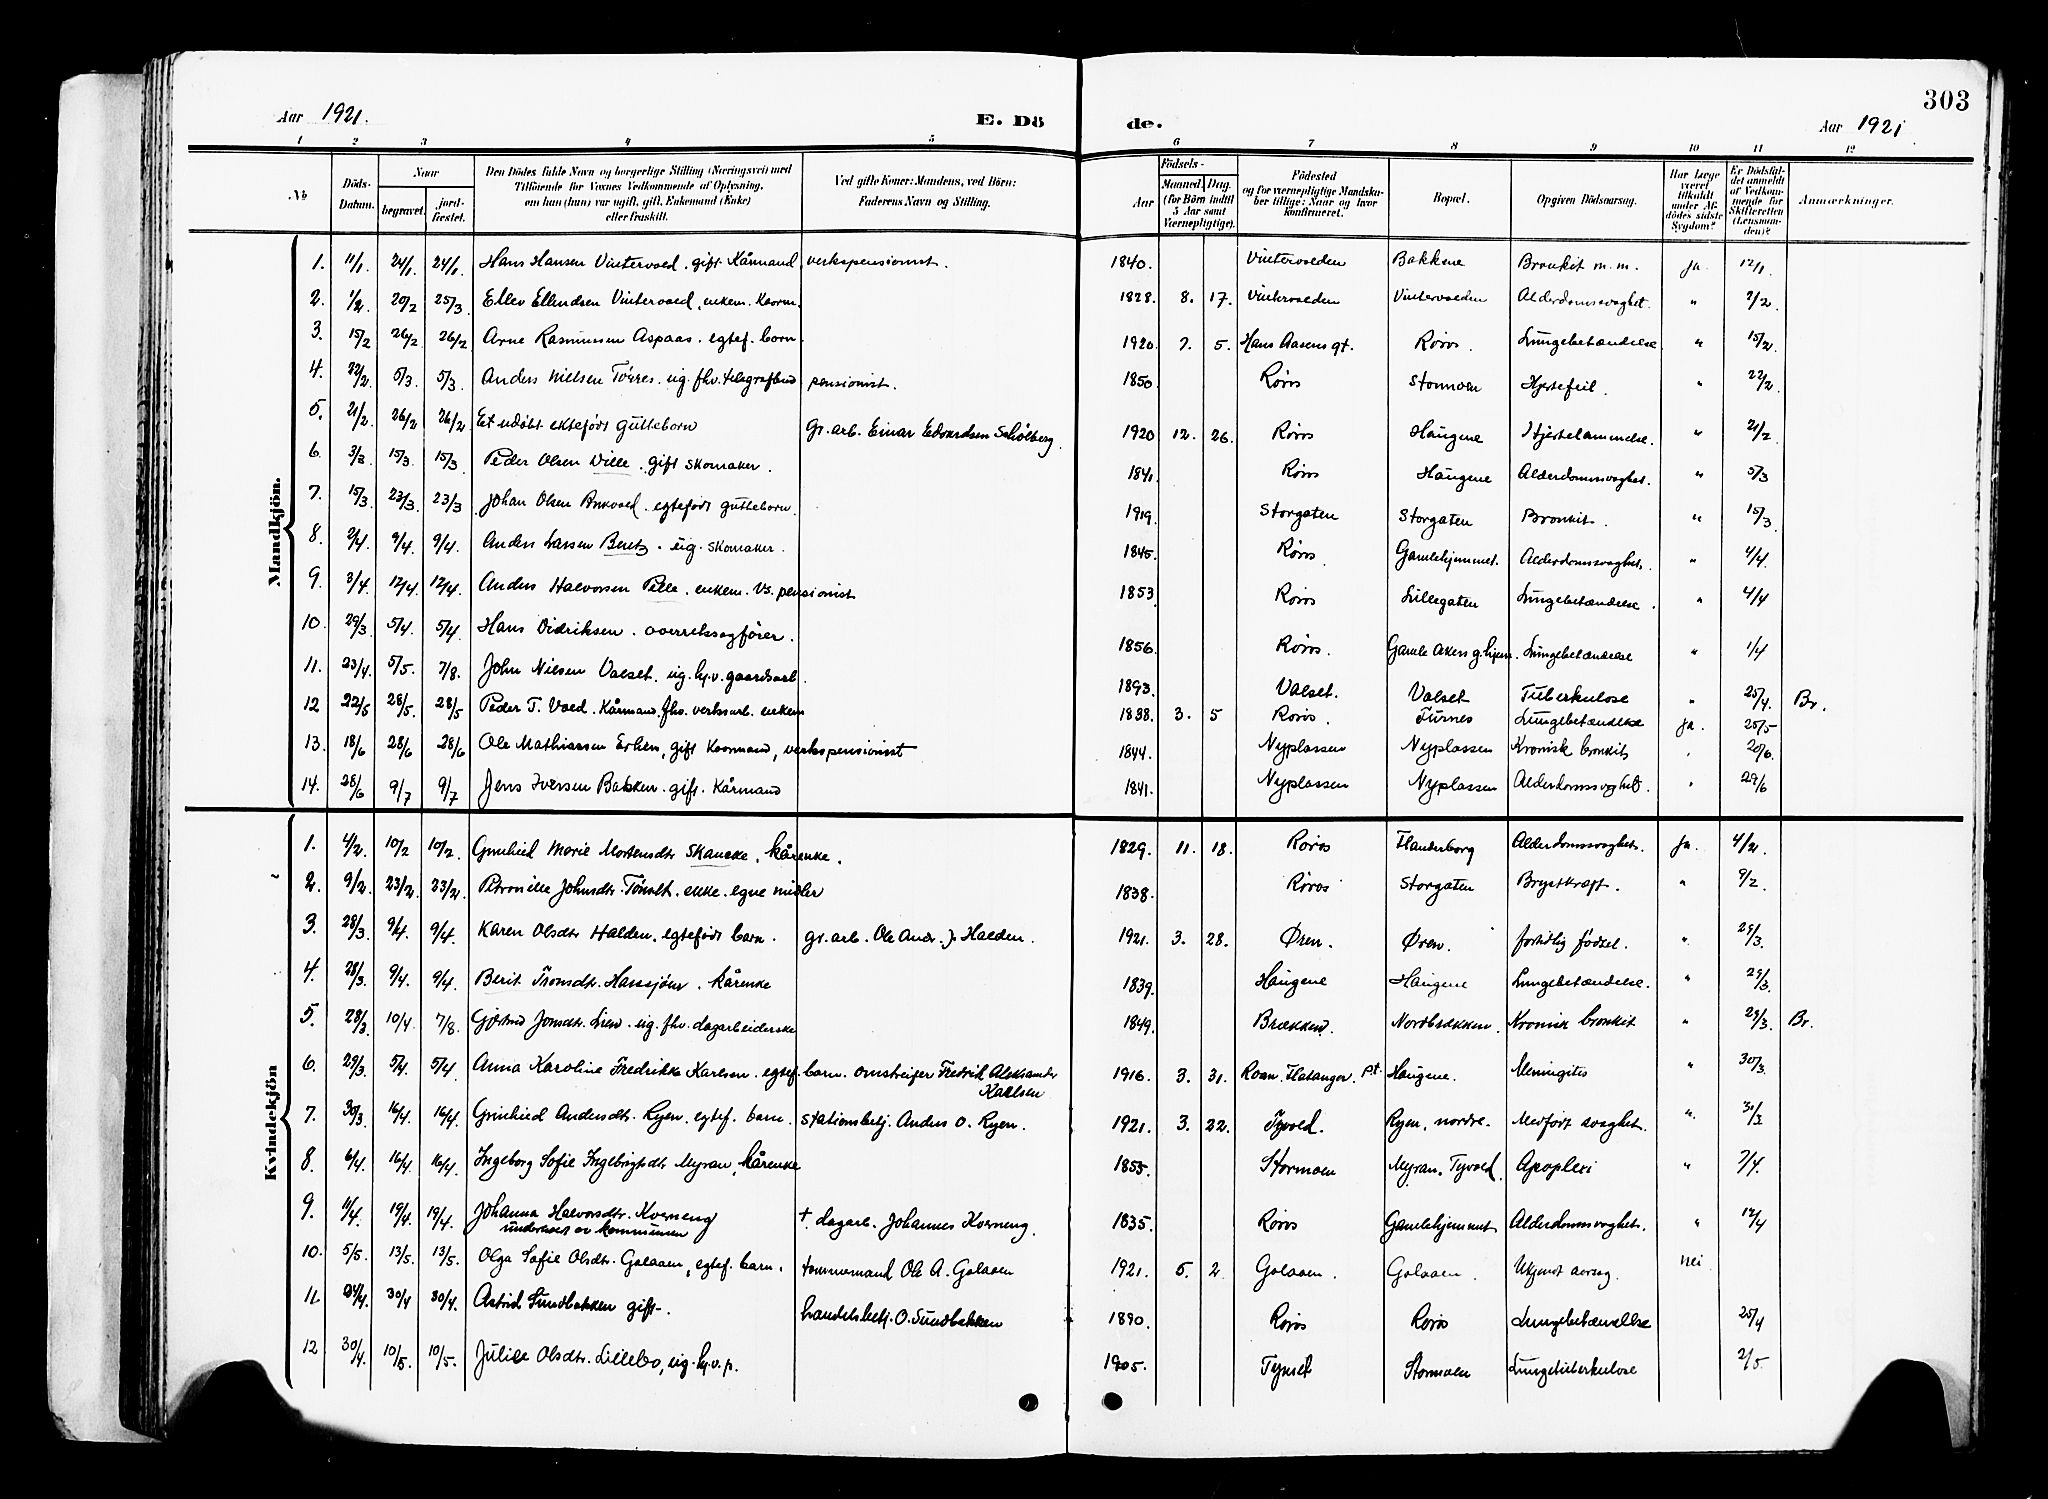 303
Aar 1921. E. Dö de. Aar 1921
1 2 3 4 5 6 7 8 9 10 11 12
No. Döds-Datum. Naar begravet. jordfæstet. Den Dödes fulde Navn og borgerlige Stilling (Næringsvei) med Tilföiende for Voxnes Vedkommende af Oplysning, om han (hun) var ugift, gift, Enkemand (Enke) eller fraskilt. Ved gifte Koner: Mandens, ved Börn: Faderens Navn og Stilling. Födsels- Aar Maaned. Dag. (for Börn indtil 5 Aar samt Værnepligtige). Födested og for værnepligtige Mandskaber tillige: Naar og hvor konfirmeret. Bopæl. Opgiven Dödsaarsag. Har Læge været tilkaldt under Afdödes sidste Sygdom? Er Dödsfaldet anmeldt af Vedkommende for Skifteretten (Lensmanden)? Anmærkninger.
Mandkjön.
1. 11/1. 24/1. 24/1. Hans Hansen Vintervold. gift. Kårmand, verkspensionist. 1840. Vintervolden Bakkene Bronkit m.m. ja. 12/1.
2. 1/2. 20/2 25/3. Ellev Ellendsen Vintervold, enkem. Kaarm. 1828. 8. 17. Vintervolden Vintervolden Alderdomssvaghet. " 2/2.
3. 15/2 26/2 26/2 Arne Rasmussen Aspaas. egtef. barn. 1920. 7. 5. Hans Aasens gt. Röros. Lungebetændelse. " 15/2.
4. 22/2. 5/3. 5/3. Anders Nielsen Törres. ug. fhv. telegrafbud pensionist. 1850. Röros Stormoen Hjertefeil. " 22/2.
5. 21/2 26/2 26/2 Et udöbt ektefödt gutteborn gr.arb. Einar Edvardsen Schölberg. 1920 12. 26. Röros Haugene Hjertelammelse. " 21/2.
6. 3/3. 15/3. 15/3. Peder Olsen Wille. gift skomaker. 1841. Röros Haugene Alderdomssvaghet. " 5/3
7. 15/3 23/3. 23/3 Johan Olsen egtefödt gutteborn. 1919. Storgaten Storgaten Bronkit. " 15/3.
8. 2/4. 9/4. 9/4. Anders Larsen Beret. ug. skomaker. 1845. Röros. Gamlehjemmet. Alderdomssvaghet. " 4/4.
9. 3/4 12/4 12/4. Anders Halvorsen Pelle. enkem. vs. pensionist 1853. Röros Lillegaten Lungebetændelse. " 4/4
10. 29/3. 5/4. 5/4. Hans Didriksen. overretssagförer. 1856. Röros. Gamle Akers g.hjem. Lungebetændelse " 1/4
11. 23/4. 5/5. 7/8. John Nilsen Valset. ug. hj.v. gaardsarb. 1893. Valset. Valset Tuberkulose " 25/4. Br.
12 22/5 28/5. 28/5 Peder T. Vold. Kårmand. fhv. verksarb. enkem 1838. 3. 5 Röros. Tufsnes Lungebetændelse ja. 25/5
13. 18/6 28/6 28/6 Ole Mathiassen Erlien, gift Kaarmand, verkspensionist 1844. Nyplassen Nyplassen Kronisk bronkit " 20/6.
14. 28/6 9/7 9/7 Jens Iversen Bakken. gift. Kårmand 1841. Nyplassen Nyplassen Alderdomssvaghet. " 29/6
Kvindekjön
1. 4/2. 10/2 10/2. Gunhild Marie Mortensdtr Skancke. Kårenke. 1829. 11. 18. Röros Flanderborg Alderdomssvaghet. Ja. 4/2.
2. 9/2. 23/2. 23/2. Petronille Johnsdtr. enke. egne midler 1838. Röros Storgaten Brystkræft. " 9/2.
3. 28/3. 9/4. 9/4. Karen Olsdtr Halden. egtefödt barn. gr. arb. Ole Andr. J. Halden. 1921. 3. 28. Øren. Øren. fortidlig födsel. " 29/3.
4. 28/3. 9/4. 9/4. Berit Tronsdtr. Harsjöen. kårenke 1839. Haugene Haugene Lungebetændelse. " 29/3.
5. 28/3. 10/4 7/8. Gjertrud Jonsdtr. Lien. ug. fhv. dagarbeiderske 1849. Brækken. Nordbrækken. Kronisk bronkit " 29/3. Br.
6. 29/3. 5/4. 5/4. Anna Karoline Fredrikke Karlsen. egtef. barn. omstreifer Fredrik Aleksander Karlsen 1916. 3. 31. Roan. Flatanger. p.t. Haugene. Meningites " 30/3.
7. 30/3. 16/4. 16/4. Gunhild Andersdtr. Ryen. egtef. barn. stationsbetj. Anders O. Ryen. 1921. 3. 22. Tyvold. Ryen, nordre. Medfödt svaghet. " 31/3
8. 6/4. 16/4. 16/4. Ingeborg Sofie Ingebrigtsdtr Myran, kårenke 1855. Stormoen Myran. Tyvold. Apoplexi " 7/4.
9. 11/4. 19/4. 19/4. Johanna Halvorsdtr. Kverneng underst. av kommunen † dagarb. Johannes Kverneng. 1835. Röros Gamlehjemmet Alderdomssvaghet. " 12/4
10. 5/5. 13/5. 13/5. Olga Sofie Olsdtr. Galaaen, egtef. barn. tömmermand Ole A. Galaaen 1921. 5. 2. Galaaen. Galaaen. Ukjendt aarsag. nei
11. 24/4. 30/4 30/4. Astrid Sundbakken gift. handelsbetj. O. Sundbakken 1890. Röros Röros Lungebetændelse 25/4
12 30/4. 10/5. 10/5. Julie Olsdtr. Lillebo, ug. hj.v.p. 1905. Tynset Stormoen Lungetuberkulose 2/5.